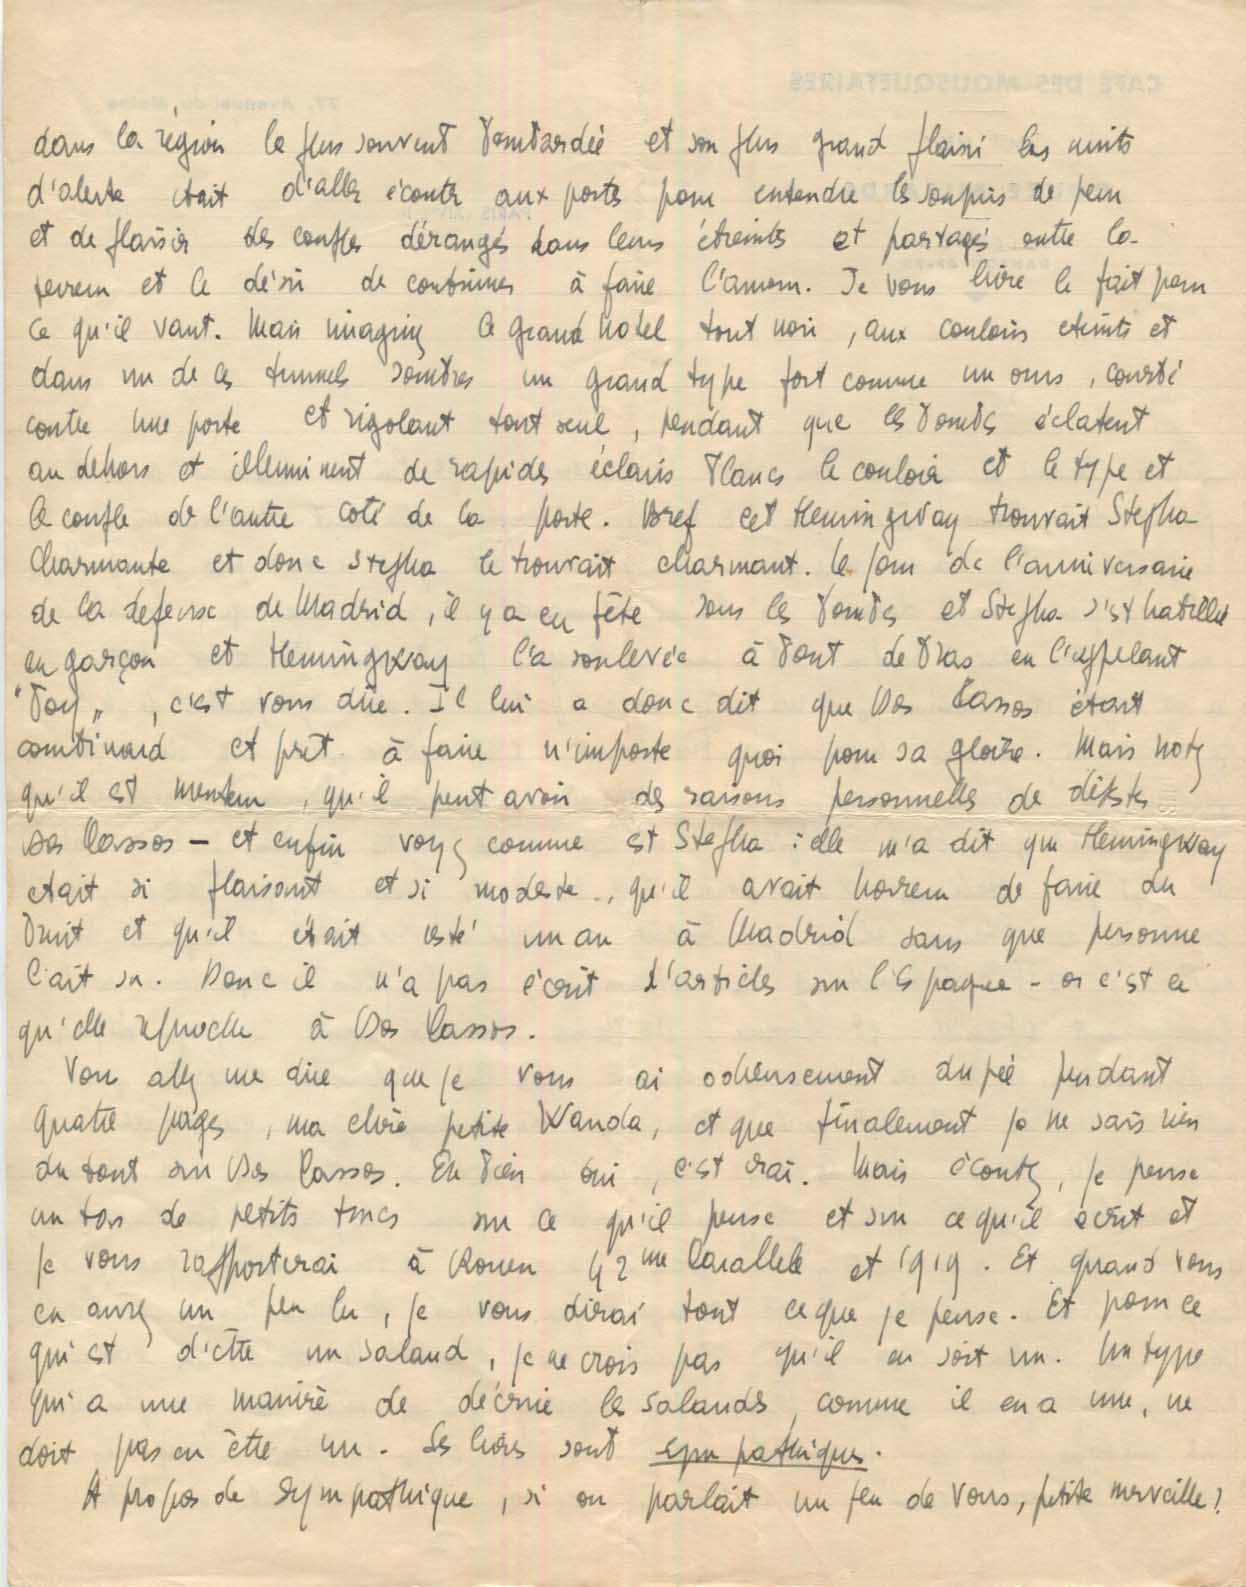 CAFÉ DES MOUSQUETAIRES
77, Avenue du Maine
dans la région la plus souvent bombardée et son plus grand plaisir les nuits
d'alerte était d'aller écouter aux portes pour entendre les soupirs de peur
et de plaisir des couples dérangés dans leurs étreintes et partagés entre la
terreur et le désir de continuer à faire l'amour. Je vous livre le fait pour
ce qu'il vaut. Mais imaginez ce grand hotel tout noir, aux couloirs eteints et
dans un de ces tunnels sombres un grand type fort comme un ours, courbé
contre une porte et rigolant tout seul, pendant que les bombes éclatent
au dehors et illuminent de rapides éclairs blancs le couloir et le type et
le couple de l'autre coté de la porte. Bref cet Hemingway trouvait Stepha
charmante et donc Stepha le trouvait charmant. Le jour de l'anniversaire
de la defense de Madrid, il y a eu fête sous les bombes et Stepha s'est habillée
en garçon et Hemingway l'a soulevée à bout de bras en l'appelant
"boy", c'est vous dire. Il lui a donc dit que Dos Passos était
combinard et prêt à faire n'importe quoi pour sa gloire. Mais notez
qu'il est menteur, qu'il peut avoir des raisons personnelles de détester
Dos Passos – et enfin voyez comme est Stepha : elle m'a dit que Hemingway
etait si plaisant et si modeste, qu'il avait horreur de faire du
bruit et qu'il était resté un an à Madrid sans que personne
l'ait su. Donc il n'a pas écrit d'articles sur l'Espagne – or c'est ce
qu'elle reproche à Dos Passos.
Vous allez me dire que je vous ai odieusement dupée pendant
quatre pages, ma chère petite Wanda, et que finalement je ne sais rien
du tout sur Dos Passos. Eh bien oui, c'est vrai. Mais écoutez, je pense
un tas de petits trucs sur ce qu'il pense et sur ce qu'il écrit et
je vous rapporterai à Rouen 42me Parallele et 1919. Et quand vous
en aurez un peu lu, je vous dirai tout ce que je pense. Et pour ce
qui est d'être un salaud, je ne crois pas qu'il en soit un. Un type
qui a une manière de décrire les salauds, comme il en a une, ne
doit pas en être un. Ses livres sont sympathiques.
A propos de sympathique, si on parlait un peu de vous, petite merveille?